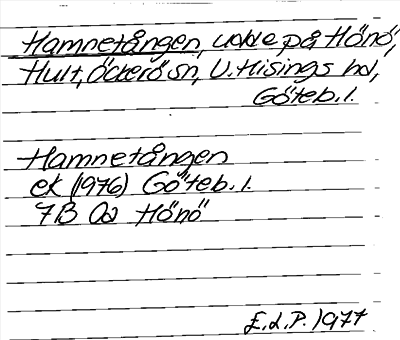 Hamnetången, udde på Hönö,
Hult, Öckerö sn, V. Hisings hd,
Göteb. l.
Hamnetången
ek (1976) Göteb. l.
7B 0a Hönö
E.L.P. 1977